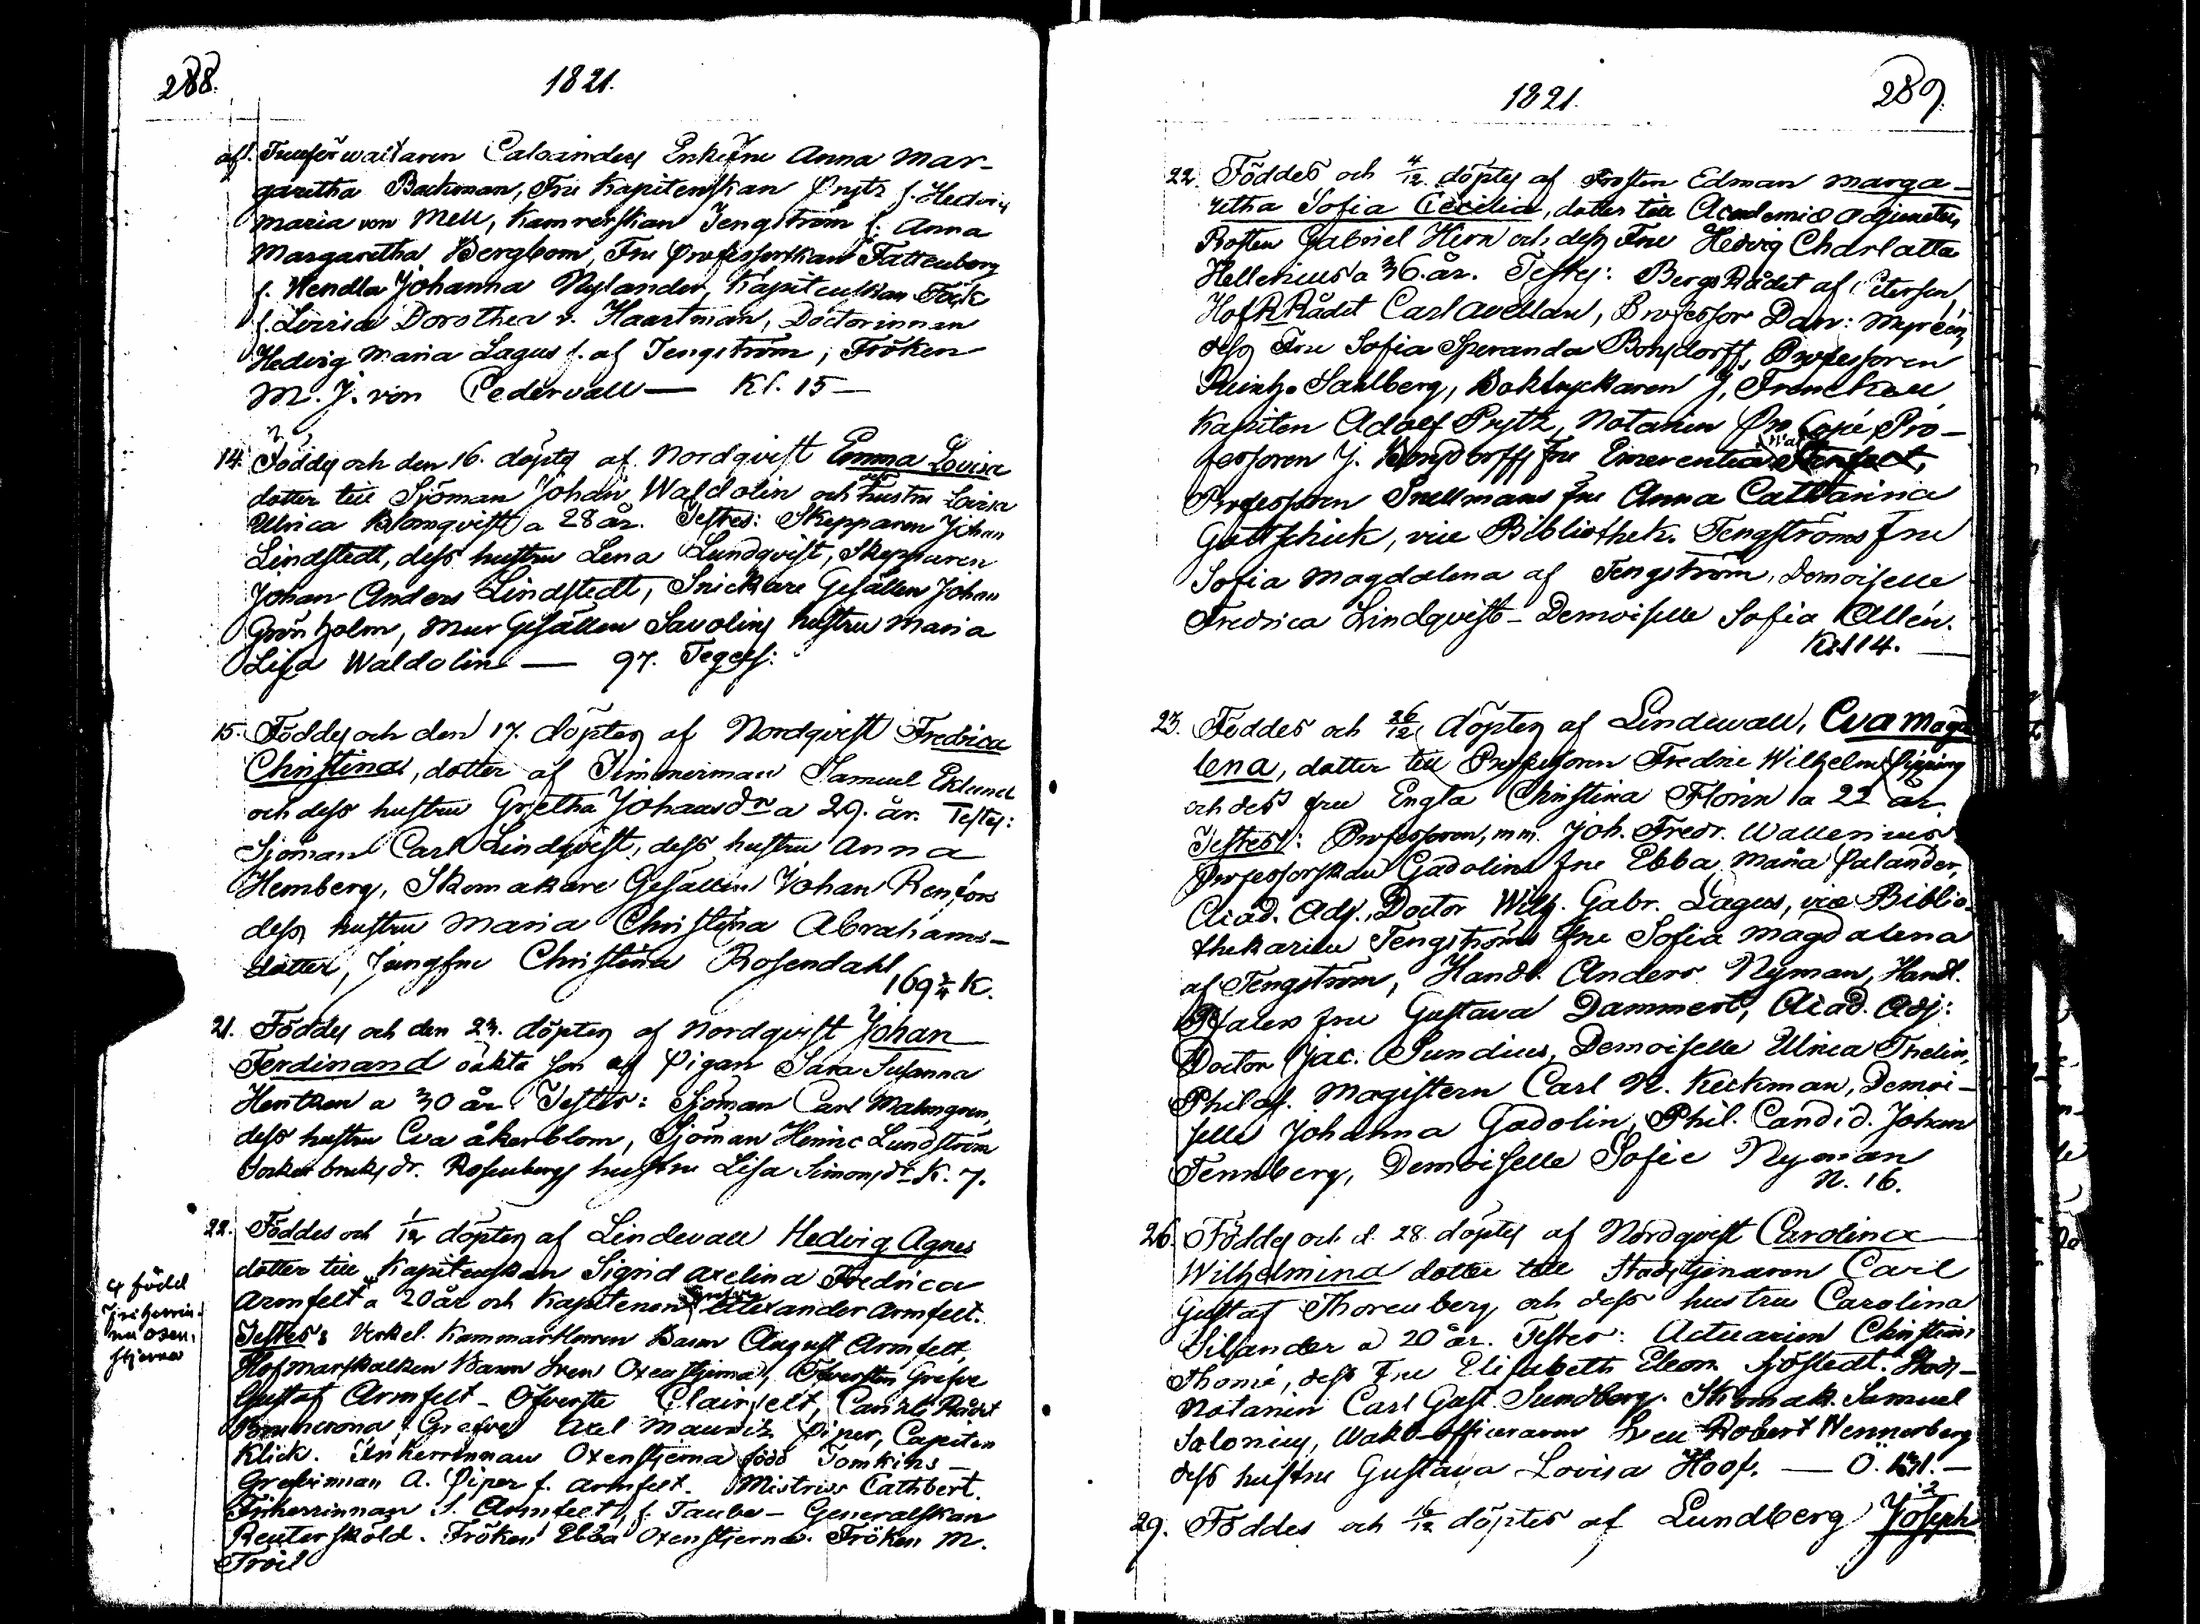 288.
1821.
garetha Backman, Fru Kapitenskan Prytz f. Hedvig
Maria von Mell, Kamrerskan Tengström f. Anna
Margaretha Bergbom, Fru Professorskan Fattenborg
f. Wendla Johanna Nylander, Kapitenskan Fock
f. Lovisa Dorothea v. Haartman, Doctorinnan
Hedvig Maria Lagus f. af Tengström, Fröken
M. J. von Cedervall — Kl. 15 —
14. Föddes och den 16. döptes af Nordqvist Emma Lovisa
dotter till Sjöman Johan Waldolin och hustru Lovisa
Ulrica Blomqvist a 28 år. Testes: Skepparen Johan
Lindstedt, dess hustru Lena Lundqvist, Skepparen
Johan Anders Lindstedt, Snickare Gesällen Johan
Grönholm, Mur Gesällen Savolins hustru Maria
Lisa Waldolin — 97.
15. Föddes och den 17. döptes af Nordqvist Fredrica
Christina, dotter af Timmerman Samuel Eklund
och dess hustru Gretha Johansdr a 29. år. Testes:
Sjöman Carl Lindqvist, dess hustru Anna
Hemberg, Skomakare Gesällen Johan Renfors
dess hustru Maria Christina Abrahams-
dotter, Jungfru Christina Rosendahl
21. Föddes och den 23. döptes af Nordqvist Johan
Ferdinand oäkta son af Pigan Sara Susanna
a 30 år. Testes: Sjöman Carl Malmgren,
dess hustru Eva Åkerblom, Sjöman Henric Lundström
Sockerbruksdr. Rosenbergs hustru Lisa Simonsdr K. 7.
22. Föddes och 1/12 döptes af Lindevall Hedvig Agnes
dotter till Kapitenskan Sigrid Axelina Fredrica
Armfelt x a 20 år och Kapitenen Grefve Alexander Armfelt.
x född
friherrin-
na Oxen-
stjerna
Testes: Verkel. Kammarherren Baron August Armfelt,
Hofmarskalken Baron Sven Oxenstjerna, Öfversten Grefve
Gustaf Armfelt – Öfverste Clairfelt, Cantzli Rådet
Grefve Axel Mauritz Piper, Capiten
Klick. Friherrinnan Oxenstjerna född Tomkins –
Grefvinnan A. Piper f. Armfelt. Mistriss Cathbert.
Friherrinnan S. Armfeelt, f. Taube – Generalskan
Reutersköld. Fröken Ebba Oxenstjerna. Fröken M.
Troil
1821.
289.
22. Föddes och 4/12 döptes af Prosten Edman Marga-
retha Sofia Cecilia, dotter till Academie Adjuncten,
Prosten Gabriel Hirn och dess Fru Hedvig Charlotta
Hellenius a 36. år. Testes: BergsRådet af Petersen,
HofRådet Carl Avellan, Professor Dan: Myréen,
dess Fru Sofia Speranda Bonsdorff, Professoren
Reinh. Sahlberg, Boktryckaren J. Frenckell
Kapiten Adolf Prytz, Notarien Pro-
fessoren J. Bonsdorffs fru Emerentia
Professoren Snellmans fru Anna Catharina
Gottschick, vice Bibliothek. Tengströms fru
Sofia Magdalena af Tengström, Demoiselle
Fredrica Lindqvist – Demoiselle Sofia Allén.
23. Föddes och 26/12 döptes af Lindevall, Eva Magda
lena, dotter till Professoren Fredric Wilhelm Pipping
och dess fru Engla Christina Florin a 22 år
Testes: Professoren, m.m. Joh. Fredr. Wallenius
Professorskan Gadolin fru Ebba Maria Palander,
Acad. Adj. Doctor Wilh. Gabr. Lagus, vice Biblio-
thekarien Tengströms fru Sofia Magdalena
af Tengström, Handl. Anders Nyman, Handl.
fru Gustava Dammert, Acad. Adj:
Doctor Jac. Sundius, Demoiselle Ulrica Thelin,
Philos. Magistern Carl N. Keckman, Demoi-
selle Johanna Gadolin, Phil. Candid. Johan
Tennberg, Demoiselle Sofie Nyman
N. 16.
26. Föddes och d. 28. döptes af Nordqvist Carolina
Wilhelmina dotter till Stadstjenaren Carl
Gustaf Thorenberg och dess hustru Carolina
Silander a 20 år. Testes: Actuarien Christian
Thomé, dess Fru Elisabeth Eleon. Sjöstedt. Stads-
Notarien Carl Gust. Sundberg. Skomak. Samuel
Salonius, Robert Wennerberg
dess hustru Gustava Lovisa Hoof.
29. Föddes och 16/12 döptes af Lundberg Joseph